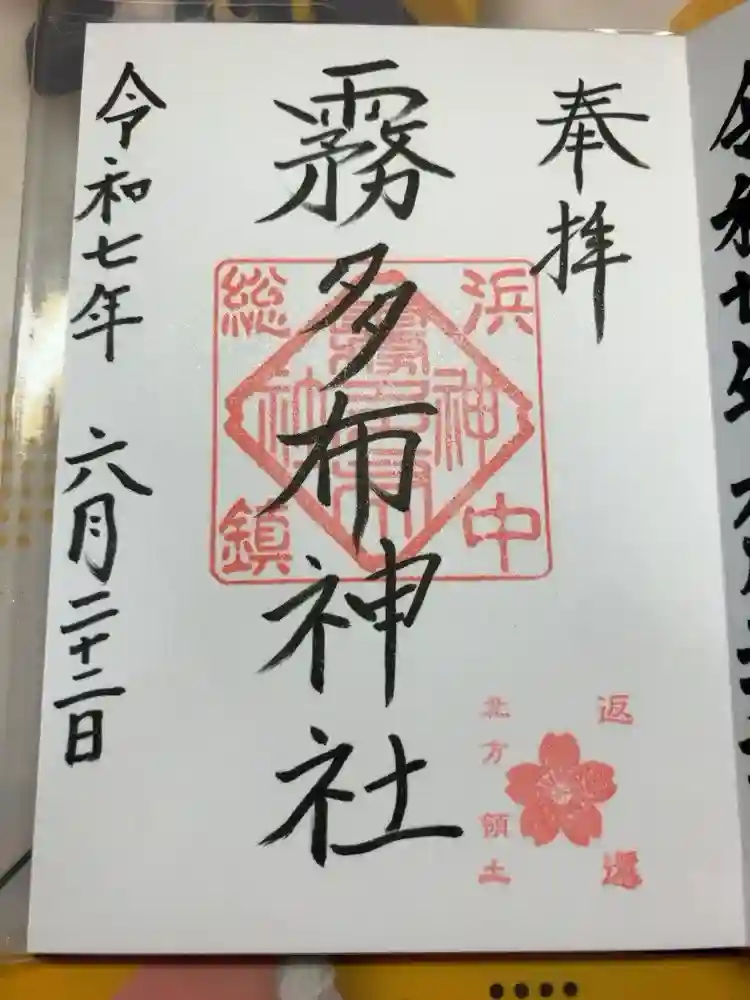 奉拝
霧多布神社
令和七年 六月二十二日
浜中
総鎮
霧多布
神社
返還
北方領土